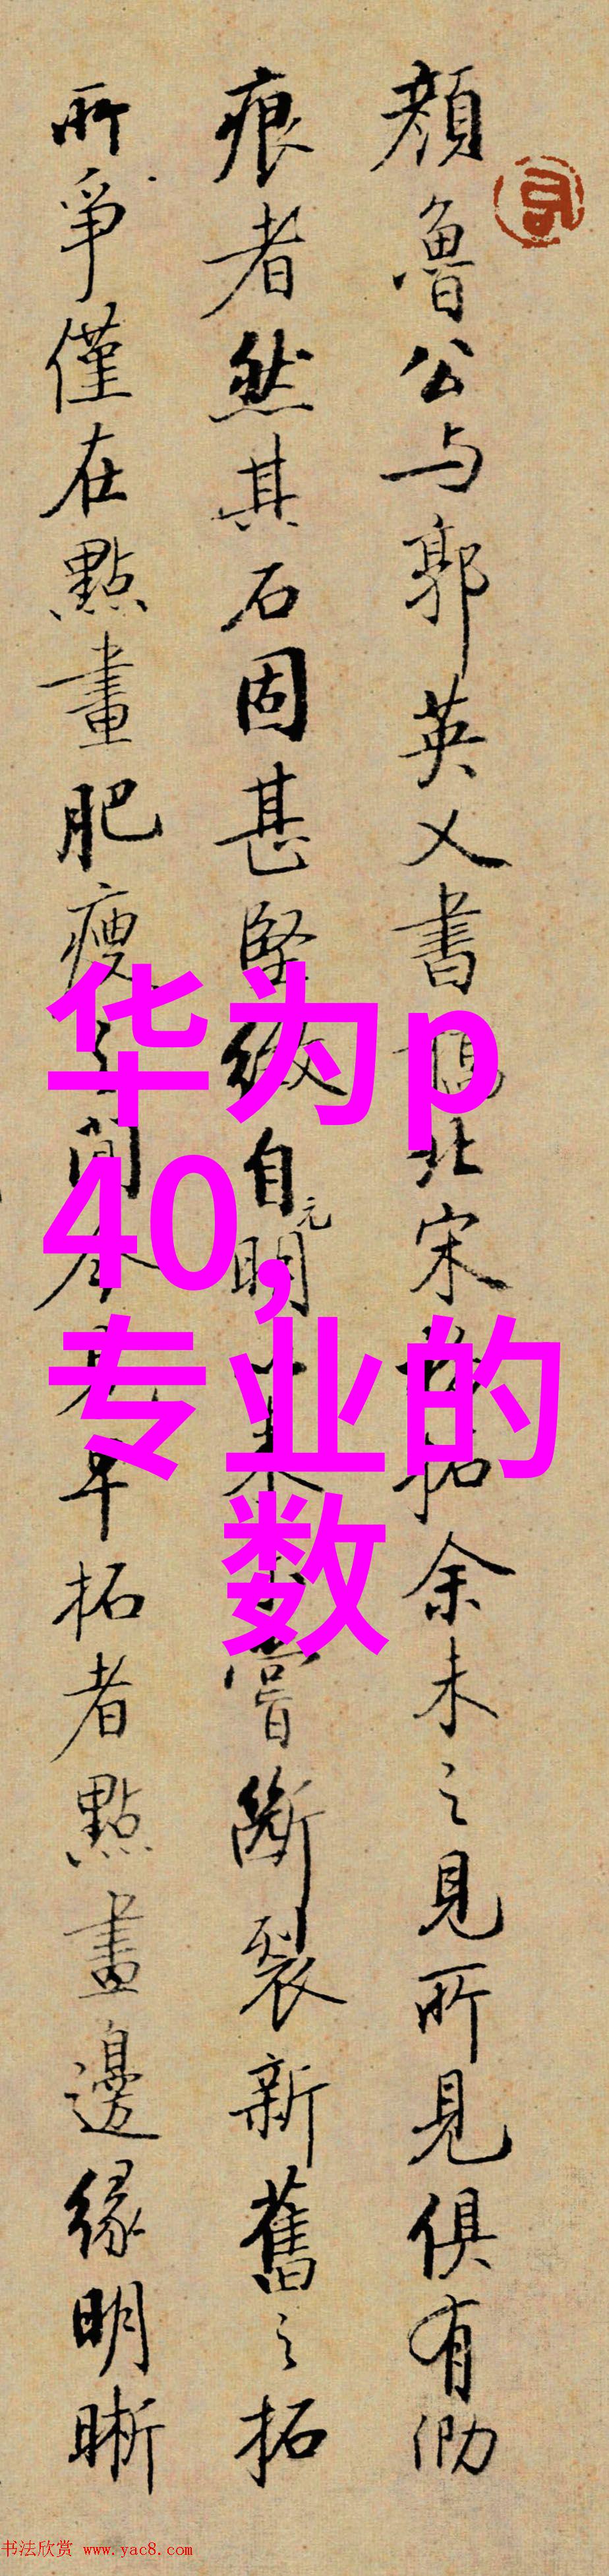 顔魯公与郭英乂書稿北宋
拓余未之見所見俱有泐
痕者然其石固甚堅緻自
元
明以来未嘗斷裂新舊之拓
所爭僅在點畫肥瘦之間今見早拓者點畫邊緣明晰
华为p
40，
专业的
数
书法欣赏 www.yac8.com